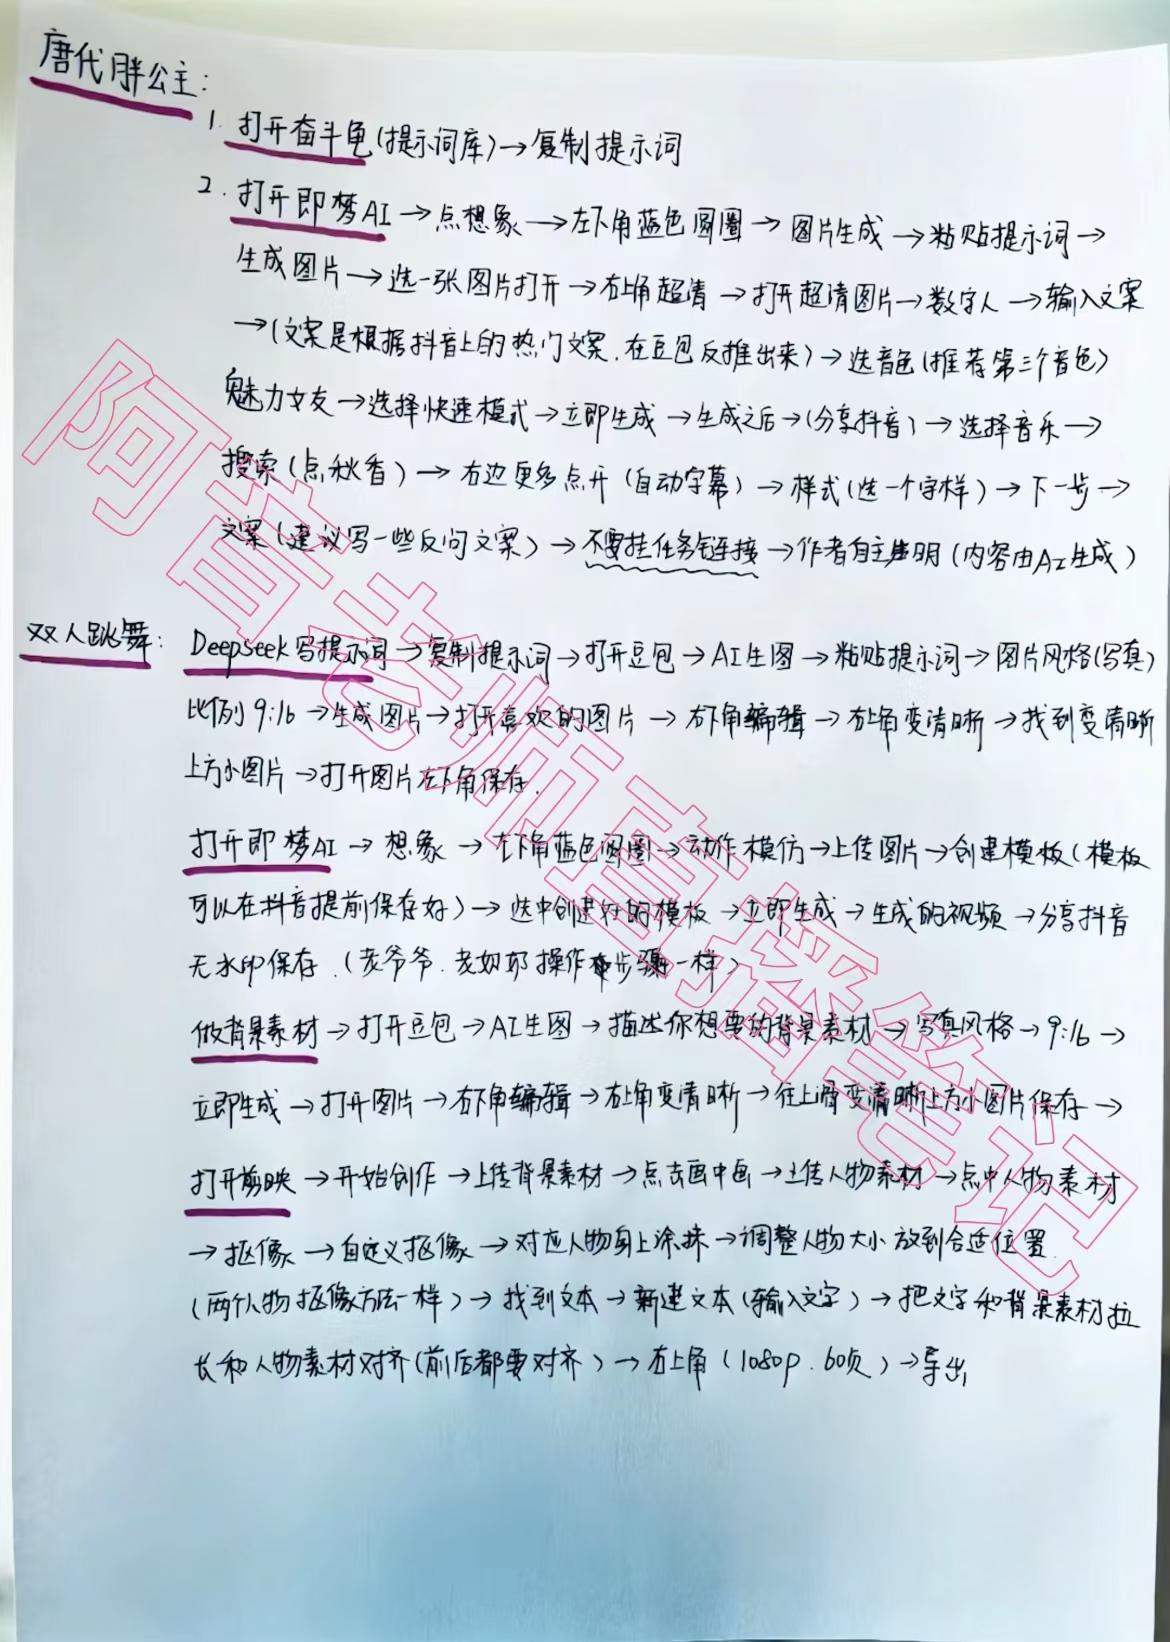 唐代胖公主:
1. 打开奋斗龟(提示词库)→复制提示词
2. 打开即梦AI→点想象→左下角蓝色圆圈→图片生成→粘贴提示词→
生成图片→选一张图片打开→右上角超清→打开超清图片→数字人→输入文案
→(文案是根据抖音上的热门文案.在豆包反推出来)→选音色(推荐第三个音色)
魅力女友→选择快速模式→立即生成→生成之后→(分享抖音)→选择音乐→
搜索(点秋香)→右边更多点开(自动字幕)→样式(选一个字样)→下一步→
文案(建议写一些反问文案)→不要挂任务链接→作者自主声明(内容由AI生成)
双人跳舞: Deepseek写提示词→复制提示词→打开豆包→AI生图→粘贴提示词→图片风格(写真)
比例9:16→生成图片→打开喜欢的图片→右下角编辑→右上角变清晰→找到变清晰
上方小图片→打开图片左下角保存.
打开即梦AI→想象→左下角蓝色圆圈→动作模仿→上传图片→创建模板(模板
可以在抖音提前保存好)→选中创建好的模板→立即生成→生成的视频→分享抖音
无水印保存.(老爷爷.老奶奶操作步骤一样)
做背景素材→打开豆包→AI生图→描述你想要的背景素材→写真风格→9:16→
立即生成→打开图片→右下角编辑→右上角变清晰→往上滑变清晰上方小图片保存→
打开剪映→开始创作→上传背景素材→点击画中画→上传人物素材→点中人物素材
→抠像→自定义抠像→对应人物身上涂抹→调整人物大小放到合适位置.
(两个人物抠像方法一样)→找到文本→新建文本(输入文字)→把文字和背景素材拉
长和人物素材对齐(前后都要对齐)→右上角(1080p.60帧)→导出
阿音老师直播笔记